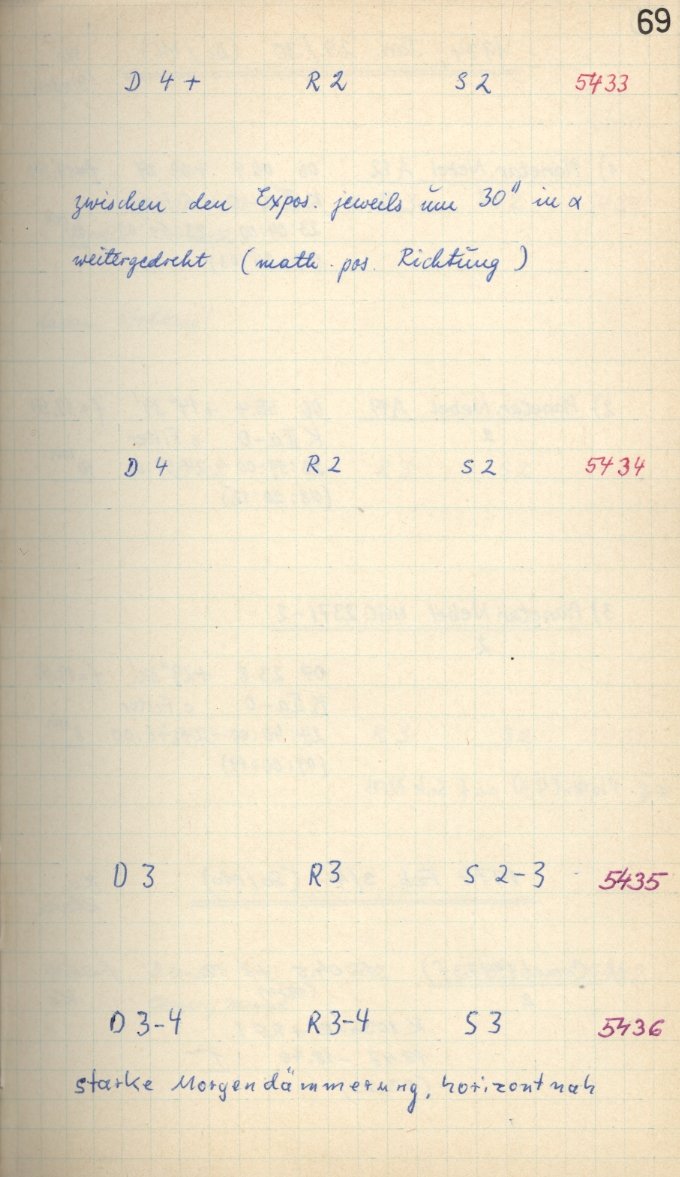 69
D 4+ R 2 S 2 5433
zwischen den Expos. jeweils um 30" in α
weitergedreht (math. pos. Richtung)
D 4 R 2 S 2 5434
D 3 R 3 S 2-3 5435
D 3-4 R 3-4 S 3 5436
starke Morgendämmerung, horizontnah